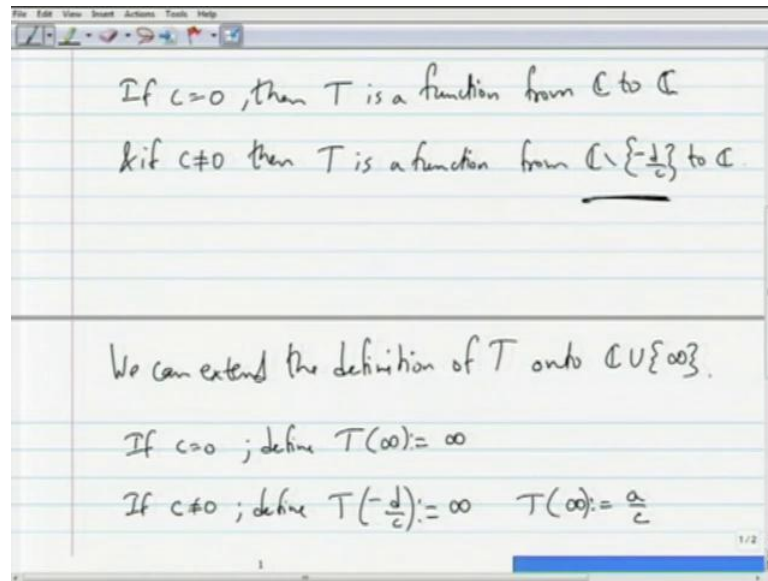 File Edit View Insert Actions Tools Help
If c=0, then T is a function from ℂ to ℂ
& if c≠0 then T is a function from ℂ\{-d/c} to ℂ.
We can extend the definition of T onto ℂ∪{∞}.
If c=0 ; define T(∞):= ∞
If c≠0 ; define T(-d/c):= ∞ T(∞):= a/c
1/2
1